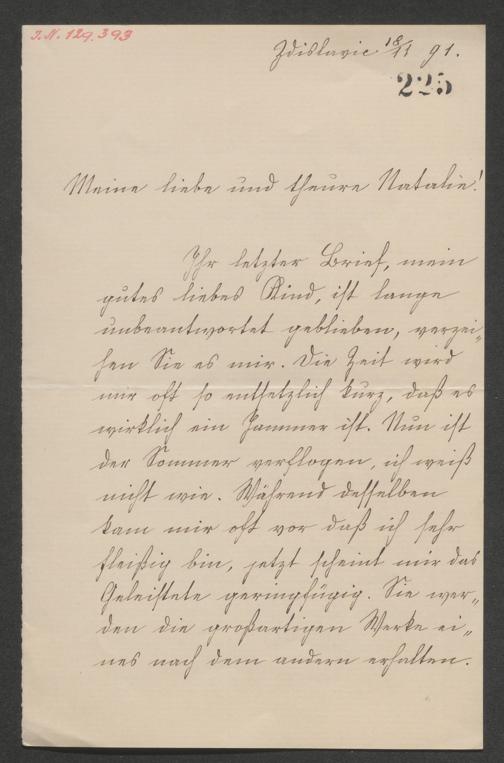 J.N. 129.393
Zdislavic 18/11 91.
225
Meine liebe und theure Natalie!
Ihr letzter Brief, mein
gutes liebes Kind, ist lange
unbeantwortet geblieben, verzei„
hen Sie es mir. Die Zeit wird
mir oft so entsetzlich kurz, daß es
wirklich ein Jammer ist. Nun ist
der Sommer verflogen, ich weiß
nicht wie. Während desselben
kam mir oft vor daß ich sehr
fleißig bin, jetzt scheint mir das
Geleistete geringfügig. Sie wer„
den die großartigen Werke ei„
nes nach dem andern erhalten.